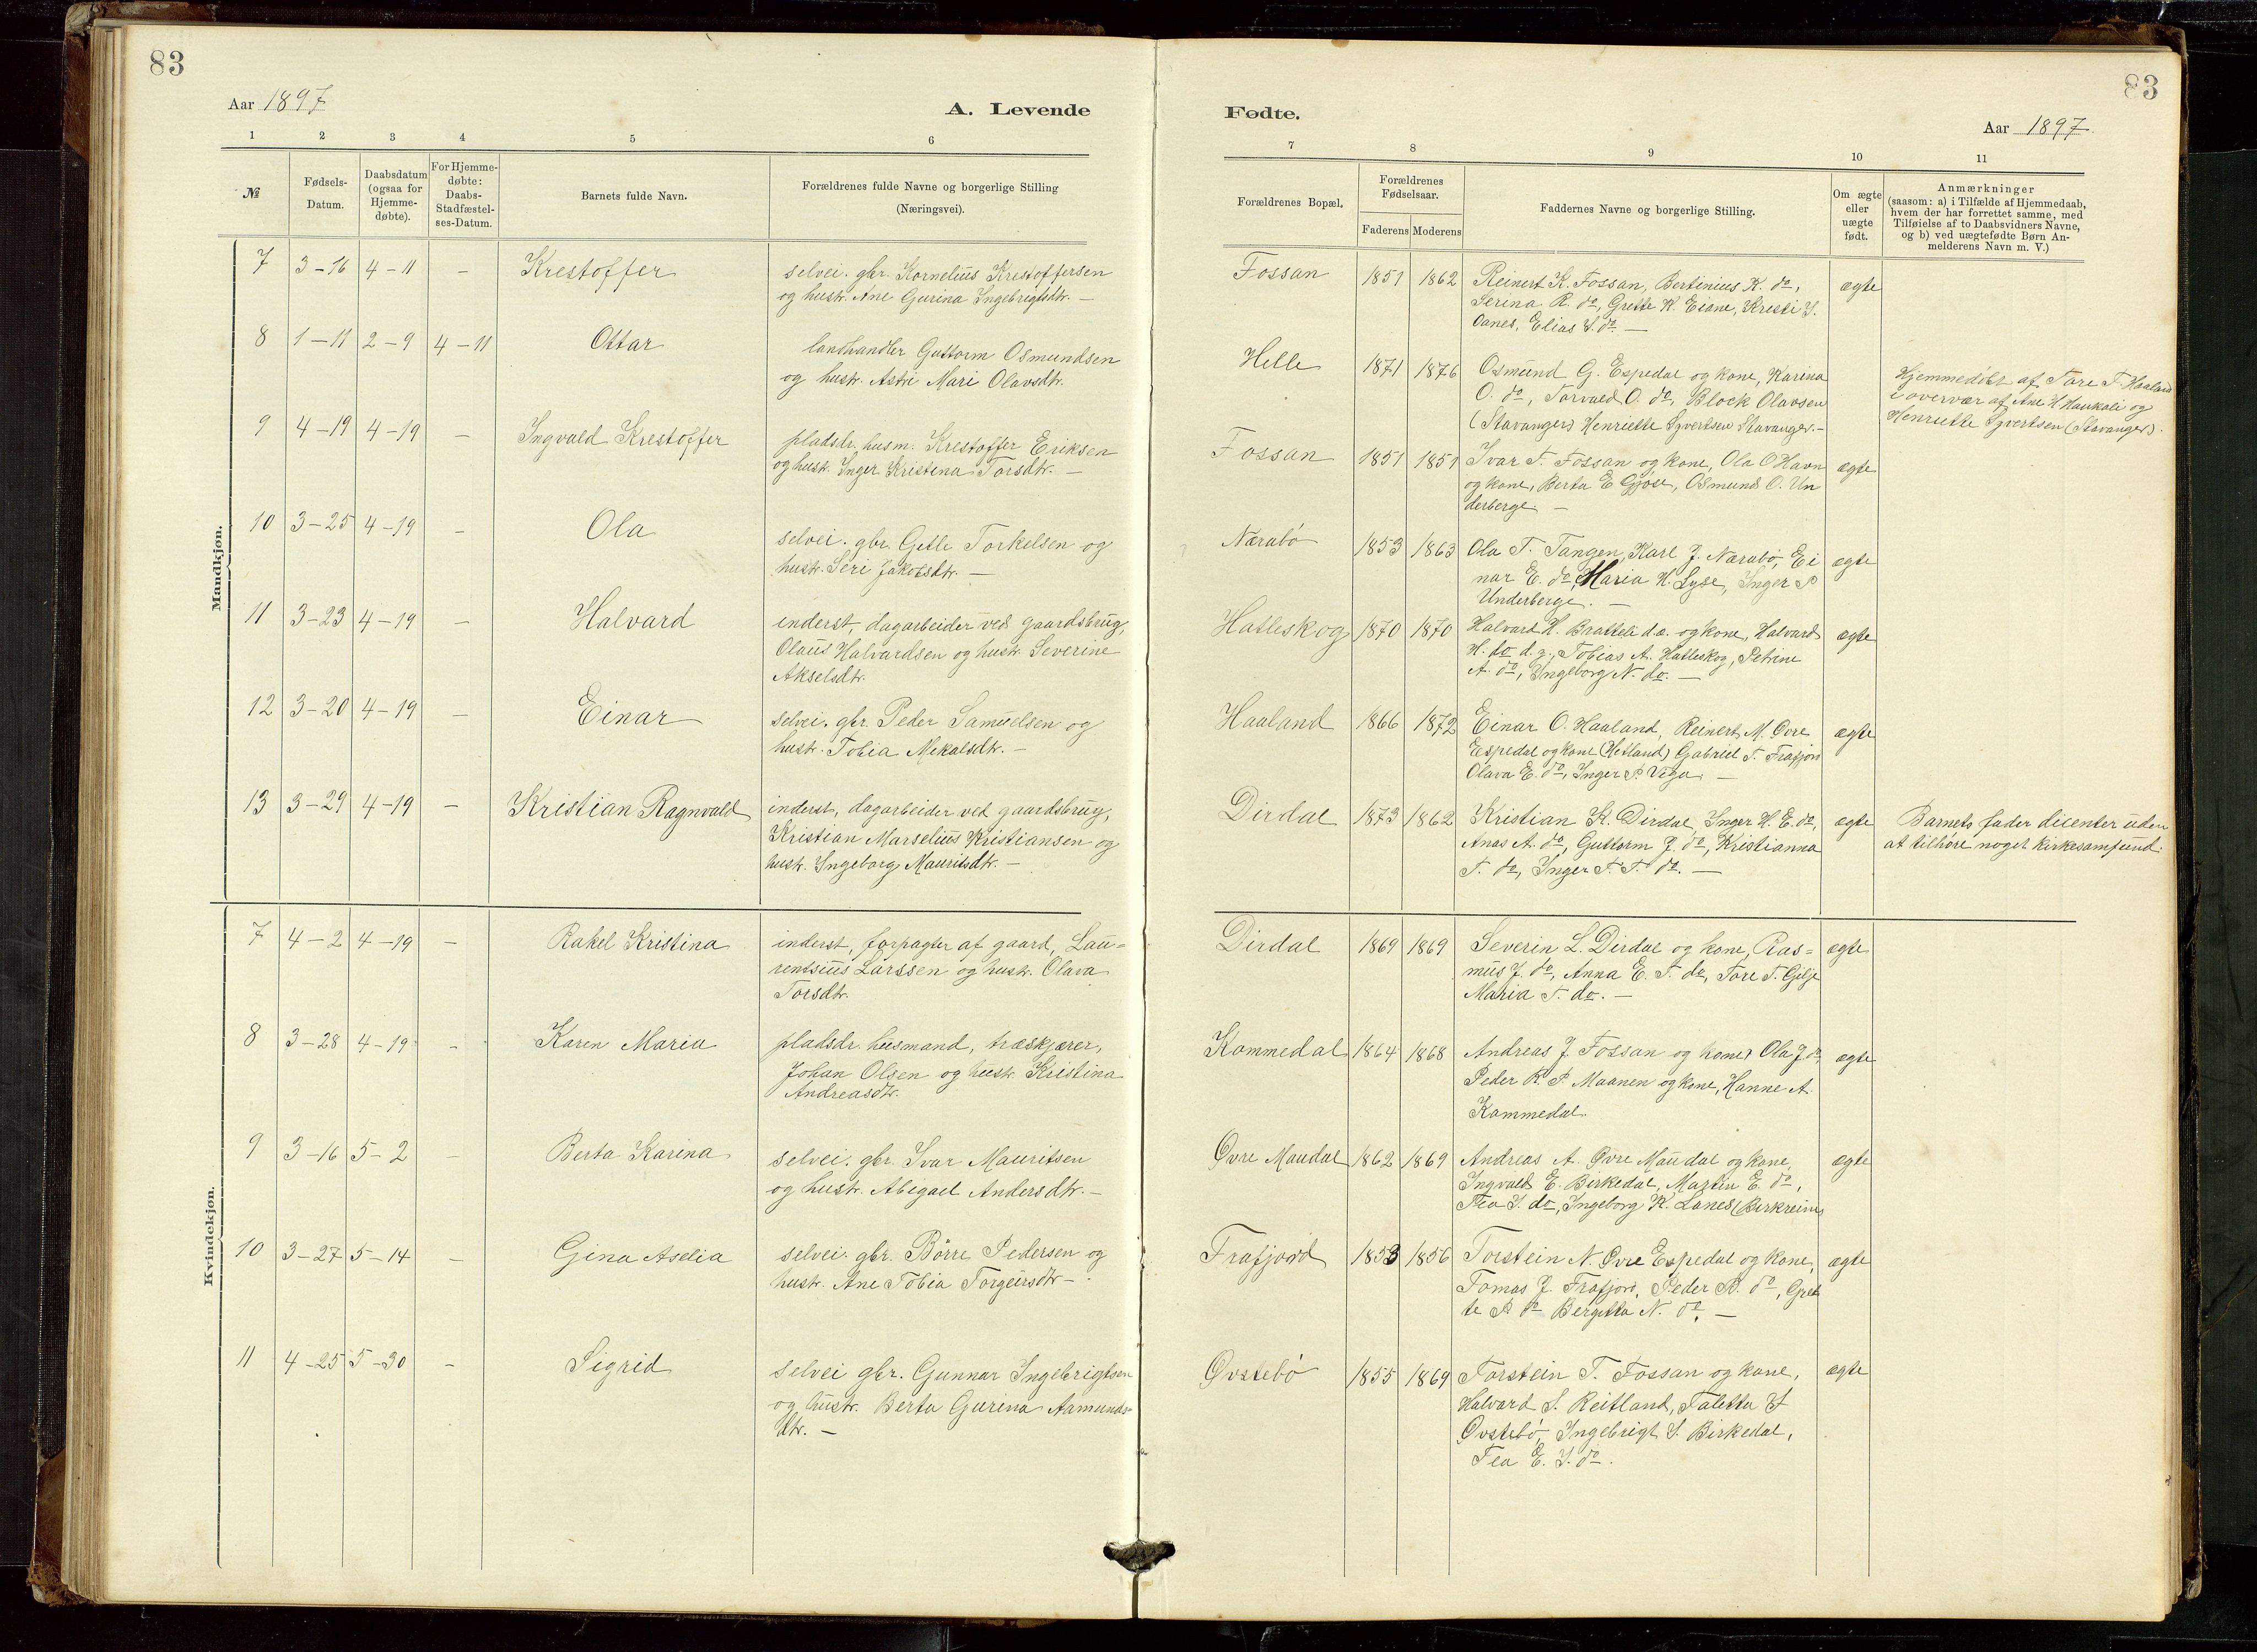 83
83
Aar 1897
A. Levende
Fødte.
Aar 1897.
1 2 3 4 5 6
7 8 9 10 11
№
Fødsels-
Datum.
Daabsdatum
(ogsaa for
Hjemme-
døbte).
For Hjemme-
døbte:
Daabs-
Stadfæstel-
ses-Datum.
Barnets fulde Navn.
Forældrenes fulde Navne og borgerlige Stilling
(Næringsvei).
Forældrenes Bopæl.
Forældrenes
Fødselsaar.
Faderens Moderens
Faddernes Navne og borgerlige Stilling.
Om ægte
eller
uægte
født.
Anmærkninger
(saasom: a) i Tilfælde af Hjemmedaab,
hvem der har forrettet samme, med
Tilføielse af to Daabsvidners Navne,
og b) ved uægtefødte Børn An-
melderens Navn m. V.)
Mandkjøn.
7 3-16 4-11 - Krestoffer
selvei. gbr. Kornelius Krestoffersen
og hustr. Ane Gurina Ingebrigtsdtr. -
Fossan 1851 1862
Reinert K. Fossan, Bertinius K. do,
Serina R. do, Grethe K. Eiane, Kristi I.
Oanes, Elias S. do. -
ægte
8 1-11 2-9 4-11 Ottar
landhandler Guttorm Osmundsen
og hustr. Astri Mari Olavsdtr.
Helle 1871 1876
Osmund G. Espedal og kone, Karina
O. do, Torvald O. do, Block Olavsen
(Stavanger) Henriette Syvertsen Stavanger. -
Hjemmedøbt af Tore T. Haaland
i overvær af Ane H Haukali og
Henriette Syvertsen (Stavanger).
9 4-19 4-19 - Ingvald Krestoffer
pladsdr. husm. Krestoffer Eriksen
og hustr. Inger Kristina Torsdtr. -
Fossan 1851 1851
Ivar T. Fossan og kone, Ola O Havn
og kone, Berta E Gjøse, Osmund O. Un
derberge -
ægte
10 3-25 4-19 - Ola
selvei. gbr. Getle Torkelsen og
hustr. Seri Jakobsdtr. -
Nærabö 1853 1863
Ola T. Tangen, Karl J. Nærabö, Ei
nar E. do, Maria H. Lyse, Inger P
Underberge. -
ægte
11 3-23 4-19 - Halvard
inderst, dagarbeider ved gaardsbrug,
Olaus Halvardsen og hustr. Severine
Akselsdtr.
Hatleskog 1870 1870
Halvard H. Bratteli d.æ. og kone, Halvard
H. do d.y., Tobias A. Hatleskog, Petrine
A. do, Ingeborg N. do. -
ægte
12 3-20 4-19 - Einar
selvei. gbr. Peder Samuelsen og
hustr. Tobia Mekalsdtr. -
Haaland 1866 1872
Einar O. Haaland, Reinert M. Øvre
Espedal og kone (Hetland) Gabriel T. Frafjord
Olava E. do, Inger P. Vega. -
ægte
13 3-29 4-19 - Kristian Ragnvald
inderst, dagarbeider ved gaardsbrug,
Kristian Marselius Kristiansen og
hustr. Ingeborg Mauritsdtr. -
Dirdal 1873 1862
Kristian K. Dirdal, Inger H. E. do,
Anas A. do, Guttorm J. do, Kristianna
T. do, Inger T. T. do. -
ægte
Barnets fader dicenter uden
at tilhöre noget kirkesamfund.
Kvindekjøn.
7 4-2 4-19 - Rakel Kristina
inderst, forpagter af gaard, Lau-
rentsius Larssen og hustr. Olava
Torsdtr.
Dirdal 1869 1869
Severin L. Dirdal og kone, Ras=
mus J. do, Anna E. T. do, Tore T. Gilje
Maria T. do. -
ægte
8 3-28 4-19 - Karen Maria
pladsdr. husmand, træskjærer,
Johan Olsen og hustr. Kristina
Andreasdtr.
Kommedal 1864 1868
Andreas J. Fossan og kone, Ola J. do,
Peder R. P. Maanen og kone, Hanne A.
Kommedal.
ægte
9 3-16 5-2 - Berta Karina
selvei. gbr. Ivar Mauritsen
og hustr. Abigael Andersdtr. -
Øvre Maudal 1862 1869
Andreas A. Øvre Maudal og kone,
Ingvald E. Birkedal, Martin E. do,
Tea I. do, Ingeborg K. Lanes (Birkreim)
ægte
10 3-27 5-14 - Gina Aselia
selvei. gbr. Börre Pedersen og
hustr. Ane Tobia Torgeirsdtr -
Frafjord 1853 1856
Torstein N. Øvre Espedal og kone,
Tomas J. Frafjord, Peder B. do, Gret
te P. do Bergitta N. do. -
ægte
11 4-25 5-30 - Sigrid
selvei gbr. Gunnar Ingebrigtsen
og hustr. Berta Gurina Aamunds-
dtr. -
Øvstebö 1855 1869
Torstein T. Fossan og kone,
Halvard S. Reitland, Taletta I
Øvstebö, Ingebrigt I. Birkedal,
Tea E. I. do.
ægte